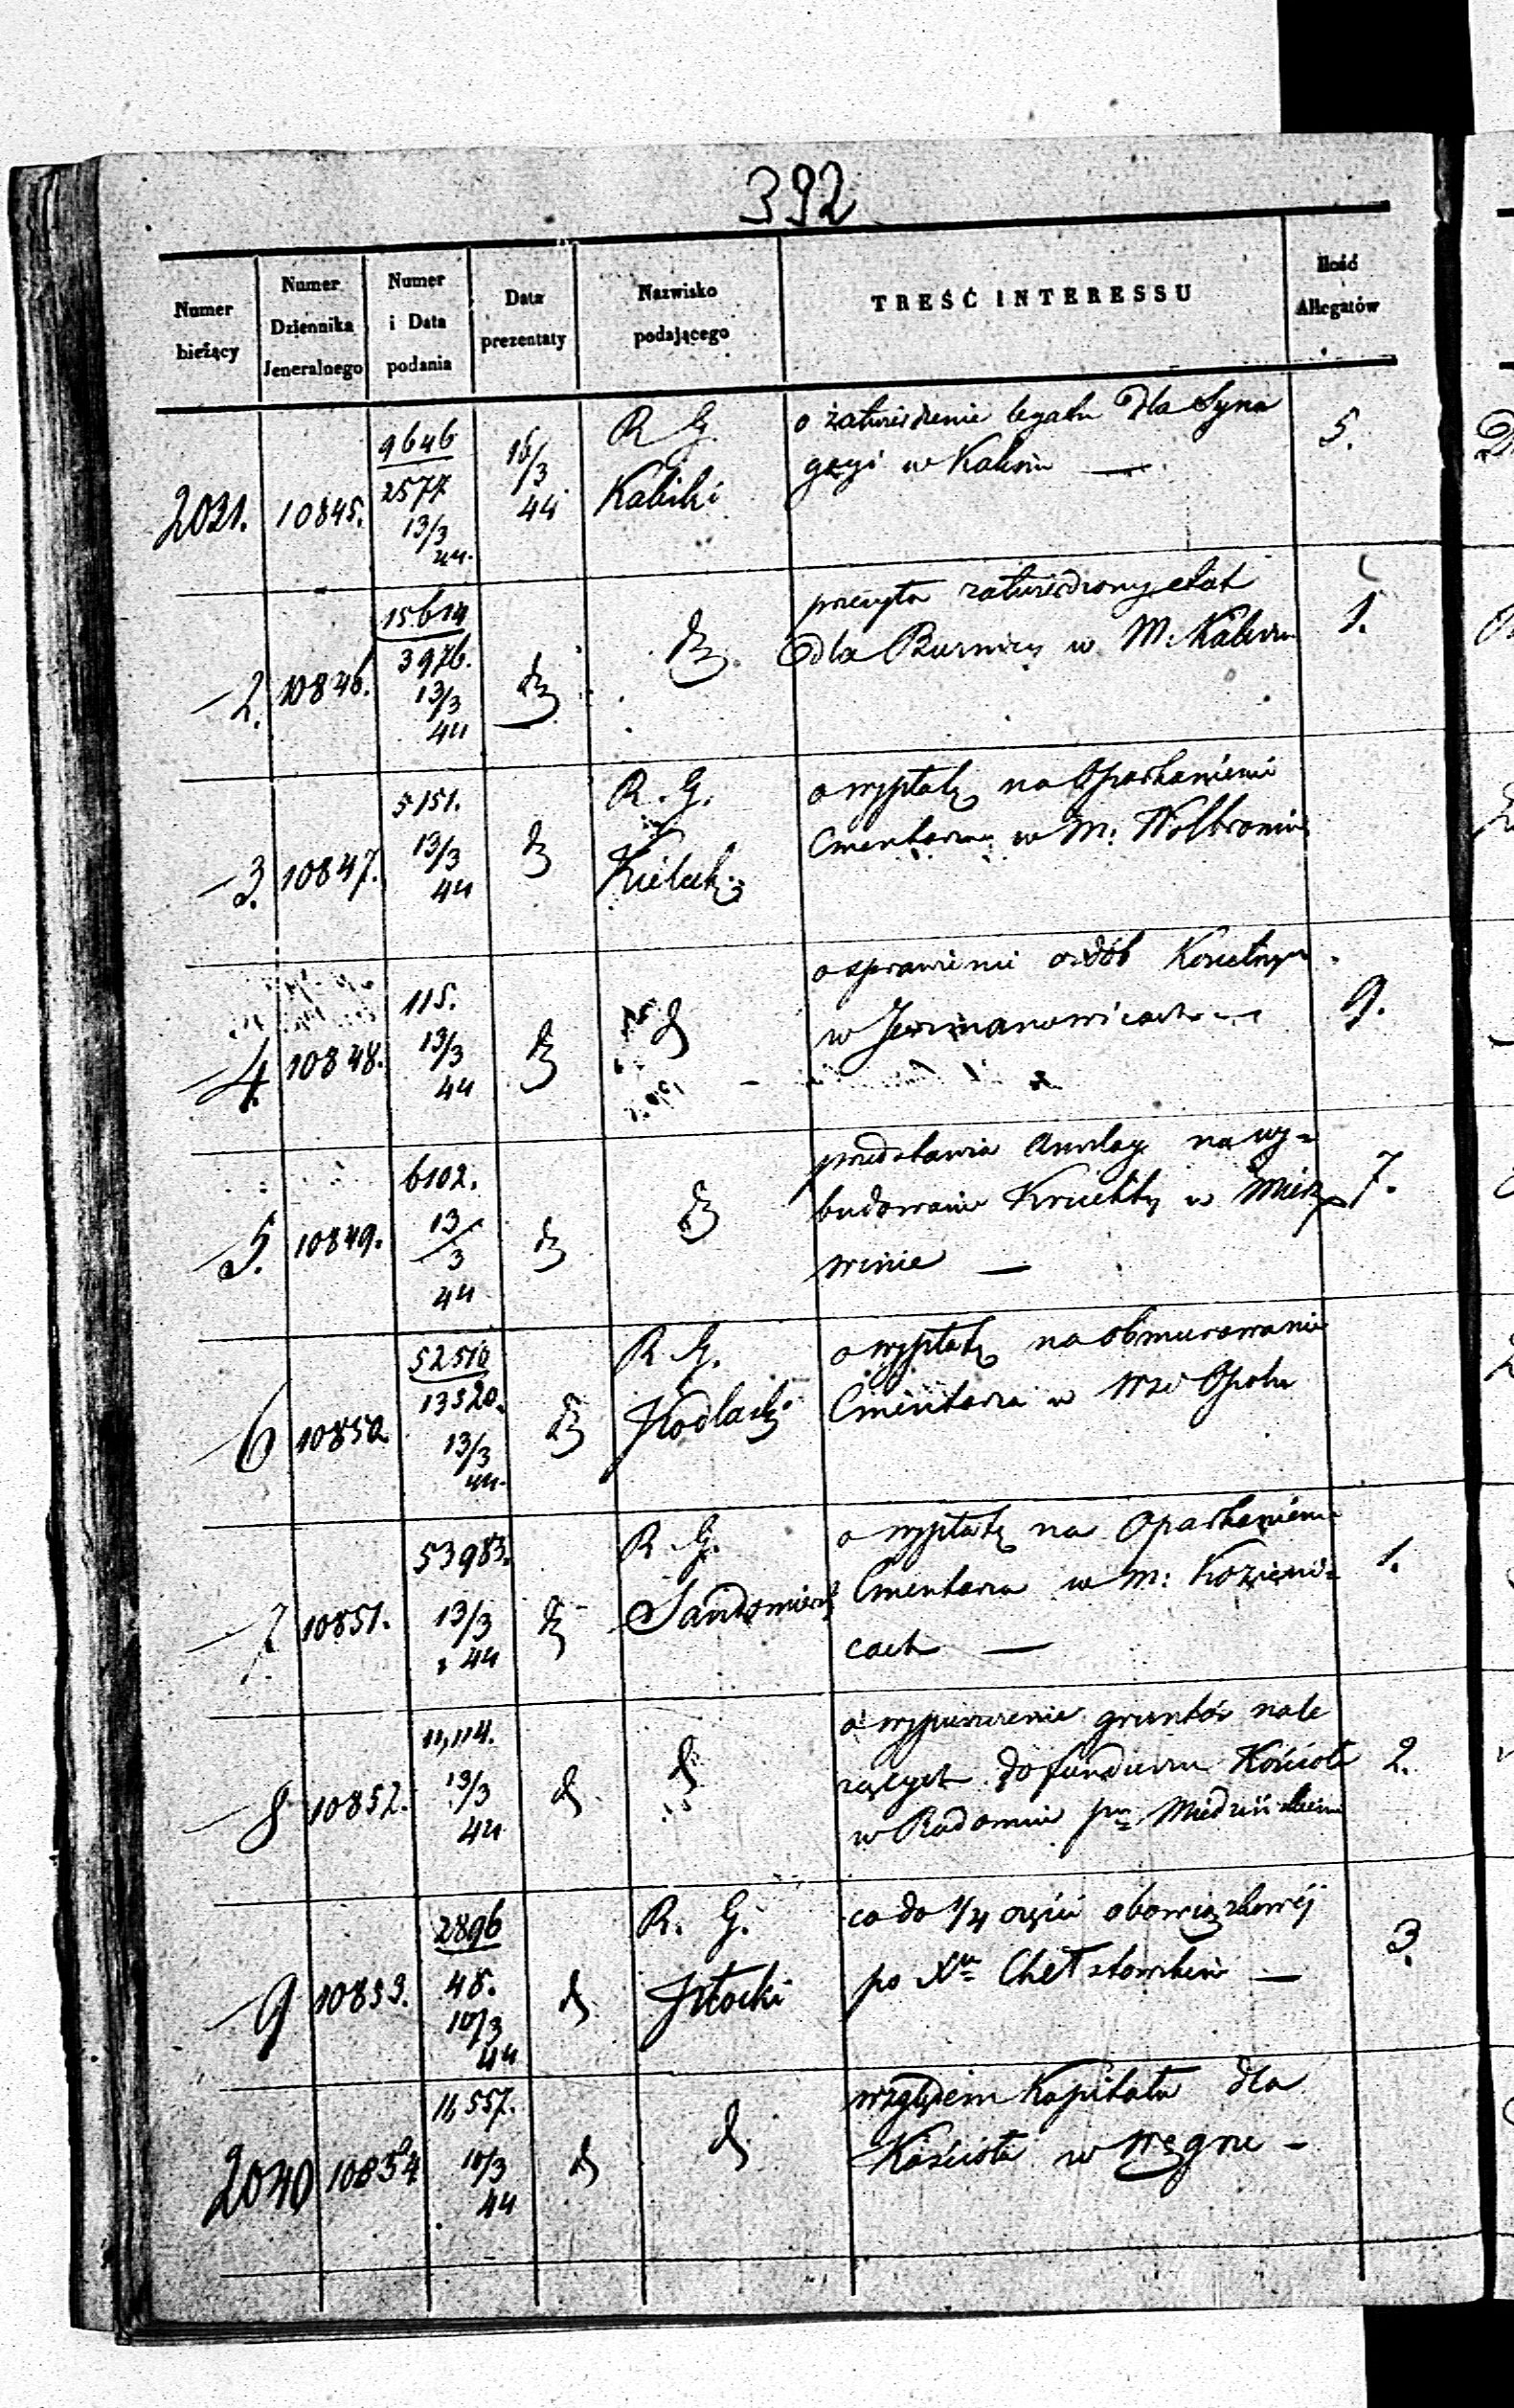 392
Numer bieżący
Numer Dziennika Jeneralnego
Numer i Data podania
Data prezentaty
Nazwisko podającego
TREŚĆ INTERESSU
Ilość Allegatów
2031. 10845. 9646 2577 13/3 44. 15/3 44 R G. Kaliski
o zatwierdzenie legatu dla Syna
gogi w Kaliszu —
5.
2. 10846. 15614 3976. 13/3 44
przesyła zatwierdzony etat
dla Bursnicy w M. Kaliszu
1.
3. 10847. 5151. 13/3 44 R. G. Kielecki
o wypłatę na Oparkanienie
Cmentarza w M: Wolbromiu
4. 10848. 115. 13/3 44
o sprawienie ozdób Kościelnych
w Jerzmanowicach
9.
5. 10849. 6102. 13/3 44
przedstawia na wy=
budowanie Kruchty w
winie —
7.
6 10850 52510 13520. 13/3 44. R G. Podlaski
o wypłatę na obmurowanie
Cmentarza w Opolu
7. 10851. 53983. 13/3 44 R G. Sandomierski
o wypłatę na Oparkanienie
Cmentarza w m: Kozieni=
cach —
1.
8 10852. 11,114. 13/3 44
o wypuszczenie gruntów nale
żących do funduszu Kościoła
w Radomiu
2.
9 10853. 2896 48. 10/3 44 R. G. Płocki
co do 1/4 części obowiązkowéj
po Xu Chełstowskim —
3.
2040 10854 11,557. 10/3 44
względem Kapitału dla
Kościoła w Węgrze —